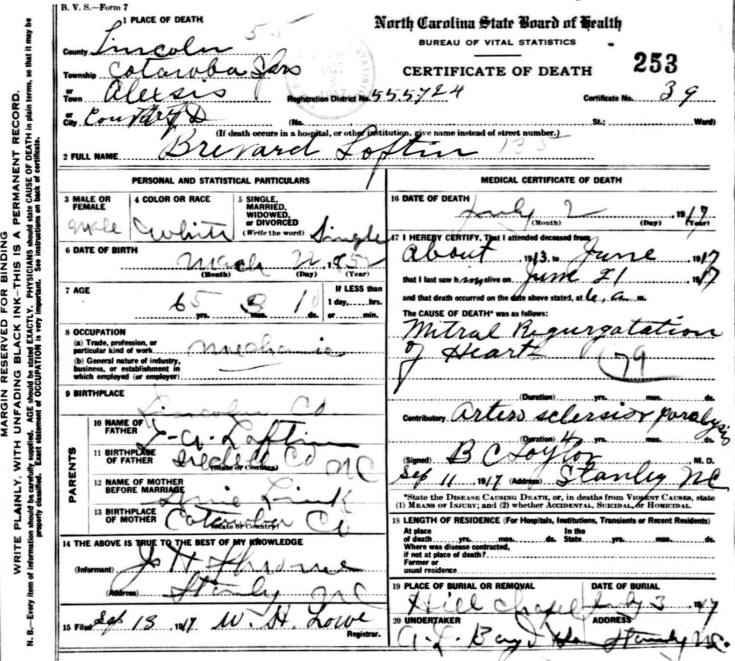 B. V. S.—Form 7
North Carolina State Board of Health
BUREAU OF VITAL STATISTICS
CERTIFICATE OF DEATH
253
1 PLACE OF DEATH
55
County Lincoln
Township Catawba Spgs
or
Town Alexis
Registration District No. 555724
Certificate No. 39
or
City Country
(No.
St.;
Ward)
(If death occurs in a hospital, or other institution, give name instead of street number.)
2 FULL NAME Brevard Loftin
PERSONAL AND STATISTICAL PARTICULARS
3 MALE OR FEMALE
Male
4 COLOR OR RACE
White
5 SINGLE, MARRIED, WIDOWED, or DIVORCED
(Write the word) Single
6 DATE OF BIRTH
(Month) (Day) (Year)
7 AGE
65 yrs. mos. ds.
If LESS than
1 day,....hrs.
or ....... min.
8 OCCUPATION
(a) Trade, profession, or
particular kind of work Mechanic
(b) General nature of industry,
business, or establishment in
which employed (or employer)
9 BIRTHPLACE
Lincoln Co
PARENTS
10 NAME OF FATHER
Loftin
11 BIRTHPLACE OF FATHER
(State or Country)
Iredell Co NC
12 NAME OF MOTHER BEFORE MARRIAGE
13 BIRTHPLACE OF MOTHER
(State or Country)
Catawba Co
14 THE ABOVE IS TRUE TO THE BEST OF MY KNOWLEDGE
(Informant) J H
(Address) Stanly NC
15 Filed Sep 13, 1917 W. H. Lowe
Registrar.
MEDICAL CERTIFICATE OF DEATH
16 DATE OF DEATH
July 2, 1917
(Month) (Day) (Year)
17 I HEREBY CERTIFY, That I attended deceased from
About 1913, to June 1917
that I last saw him alive on June 21 1917
and that death occurred on the date above stated, at 6, a. m.
The CAUSE OF DEATH* was as follows:
Mitral Regurgatation
of Heart
79
(Duration) yrs. mos. ds.
Contributory Artero sclersior paralysis
(Duration) 4 yrs. mos. ds.
(Signed) B C Taylor M. D.
Sep 11 1917 (Address) Stanley NC
*State the DISEASE CAUSING DEATH, or, in deaths from VIOLENT CAUSES, state
(1) MEANS OF INJURY; and (2) whether ACCIDENTAL, SUICIDAL, or HOMICIDAL.
18 LENGTH OF RESIDENCE (For Hospitals, Institutions, Transients or Recent Residents)
At place of death yrs. mos. ds. In the State yrs. mos. ds.
Where was disease contracted,
if not at place of death?
Former or
usual residence
19 PLACE OF BURIAL OR REMOVAL
Hill Chapel
DATE OF BURIAL
July 3, 1917
20 UNDERTAKER
ADDRESS
Stanly NC.
MARGIN RESERVED FOR BINDING
WRITE PLAINLY, WITH UNFADING BLACK INK—THIS IS A PERMANENT RECORD.
N. B.—Every item of information should be carefully supplied. AGE should be stated EXACTLY. PHYSICIANS should state CAUSE OF DEATH in plain terms, so that it may be
properly classified. Exact statement of OCCUPATION is very important. See instructions on back of certificate.